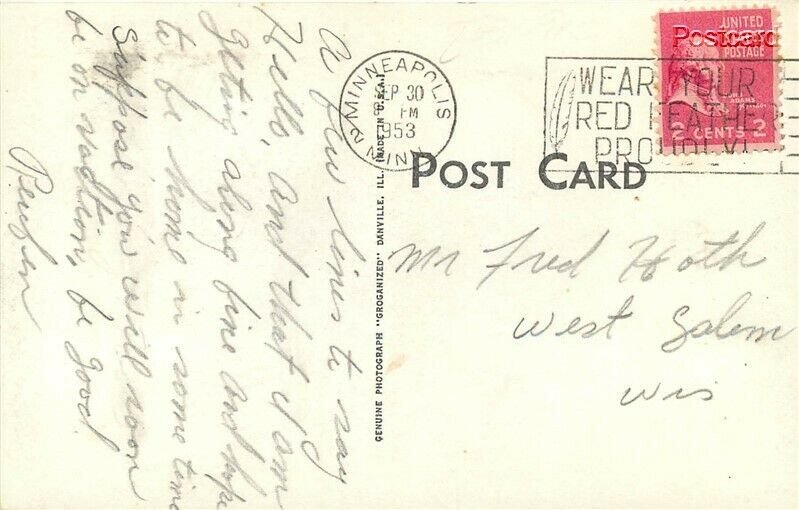 A few lines to say
Hello, and that I am
geting along fine and hope
to be home in some time
Suppose you will soon
be on be good
Reuben
MINNEAPOLIS
SEP 30
PM
1953
MINN.
2
WEAR YOUR
RED FEATHER
UNITED
POSTAGE
ADAMS
2 CENTS 2
Postcard
POST CARD
GENUINE PHOTOGRAPH "GROGANIZED" DANVILLE, ILL. (MADE IN U.S.A.)
Mr Fred Hoth
West Salem
Wis